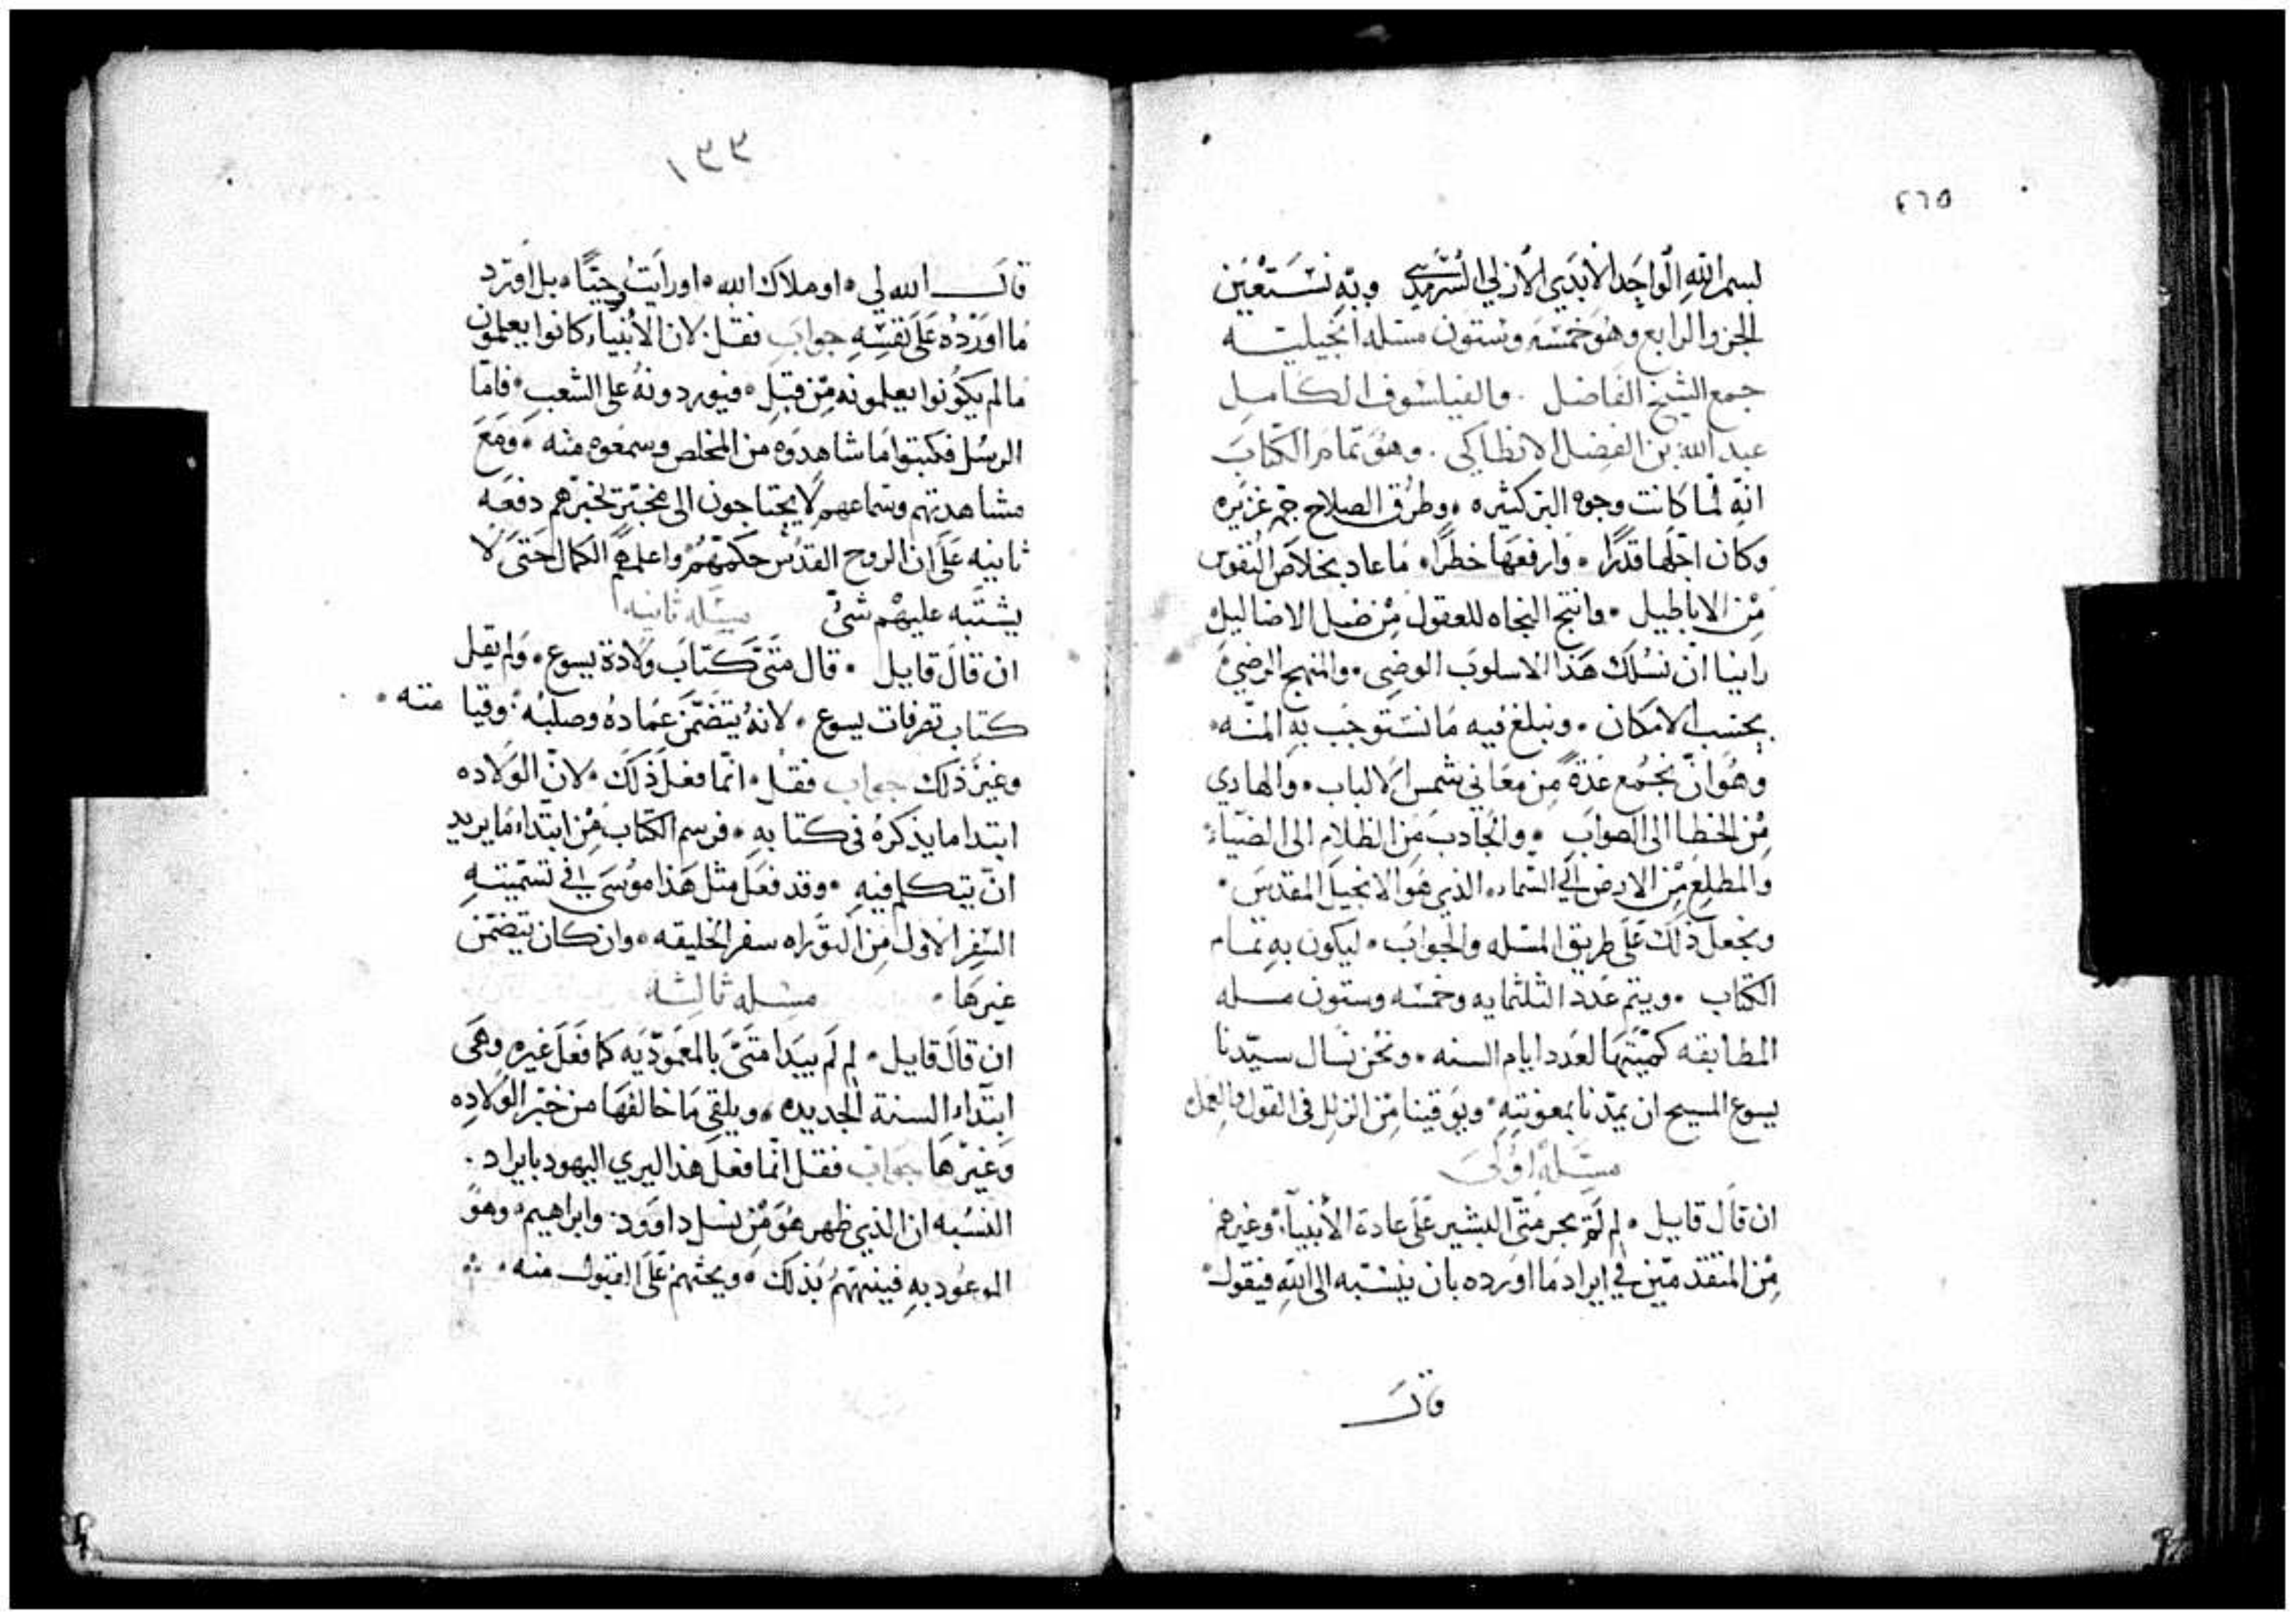 ٢٦٥
بسم الله الواحد الابدي الازلي السرمدي وبه نستعين
الجزو الرابع وهو خمسة وستون مسله انجيليه
جمع الشيخ الفاضل . والفيلسوف الكامل
عبد الله بن الفضل الانطاكي . وهو تمام الكتاب
انه لما كانت وجوه البر كثيره ، وطرق الصلاح جم غزيره
وكان اجلها قدرًا . وارفعها خطرًا ، ما عاد بخلاص النفوس
من الاباطيل . وانتج النجاه للعقول من ضبل الاضاليل
راينا ان نسلك هذا الاسلوب الوضي . والمنهج الرضي
بحسب الامكان . ونبلغ فيه ما نستوجب به المنه .
وهو ان نجمع عدة من معاني شمس الالباب . والهادي
من الخطا الى الصواب . والجادب من الظلام الى الضياء
والمطلع من الارض الى السماء . الذي هو الانجيل المقدس .
ونجعل ذلك على طريق المسله والجواب . ليكون به تمام
الكتاب . ويتم عدد الثلثمايه وخمسه وستون مسله
المطابقه كميتها لعدد ايام السنه . ونحن نسال سيدنا
يسوع المسيح ان يمدنا بمعونته . ويوقينا من الزلل في القول والعمل
مسئلة اولى
ان قال قايل . لم لم يجر متى البشير على عادة الأنبياء وغيرهم
من المتقدمين في ايراد ما اورده بان ينسبه الى الله فيقول
قال
١٣٣
قال الله لي . او ملاك الله . او رايت وحيًا . بل افرد
ما اورده على نفسه جواب فقل . لان الأنبياء كانوا يعلمون
ما لم يكونوا يعلمونه من قبل . فيوردونه على الشعب . فاما
الرسل فكتبوا ما شاهدوه من المخلص وسمعوه منه . ومع
مشاهدتهم وسماعهم لا يحتاجون الى مخبر يخبرهم دفعه
ثانيه على ان الروح القدس حكمهم واعلمهم الكمال حتى لا
يشتبه عليهم شي مسئله ثانيه
ان قال قايل . قال متى كتاب ولادة يسوع . ولم يقل
كتاب تصرفات يسوع . لانه يتضمن عماده وصلبه . وقيامته .
وغير ذلك جواب فقل . انما فعل ذلك . لان الولاده
ابتدا ما يذكره في كتابه . فرسم الكتاب من ابتداء ما يريد
ان يتكلم فيه . وقد فعل مثل هذا موسى في تسميته
السفر الاول من التوراه سفر الخليقه . وان كان يتضمن
غيرها . مسله ثالثه
ان قال قايل . لم لم يبدا متى بالمعموديه كما فعل غيره وهي
ابتداء السنة الجديده . ويلقى ما خالفها من خبر الولاده
وغيرها جواب فقل انما فعل هذا ليري اليهود بايراد .
النسبه ان الذي ظهر هو من نسل داوود . وابراهيم . وهو
الموعود به فينبههم بذلك . ويحثهم على القبول منه .